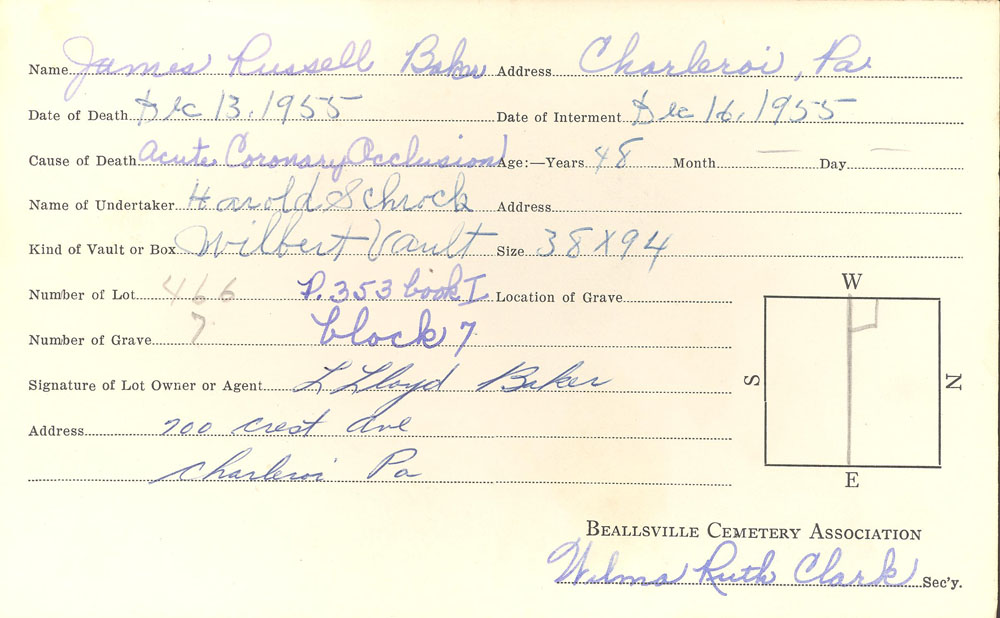 Name James Russell Baker Address Charleroi, Pa.
Date of Death Dec 13, 1955 Date of Interment Dec 16, 1955
Cause of Death Acute Coronary Occlusion Age:—Years 48 Month — Day —
Name of Undertaker Harold Schrock Address
Kind of Vault or Box Wilbert Vault Size 38 X 94
Number of Lot 466 P. 353 book I Location of Grave
Number of Grave 7 block 7
Signature of Lot Owner or Agent L Lloyd Baker
Address 700 Crest Ave
Charleroi Pa
W
S N
E
BEALLSVILLE CEMETERY ASSOCIATION
Wilma Ruth Clark Sec'y.